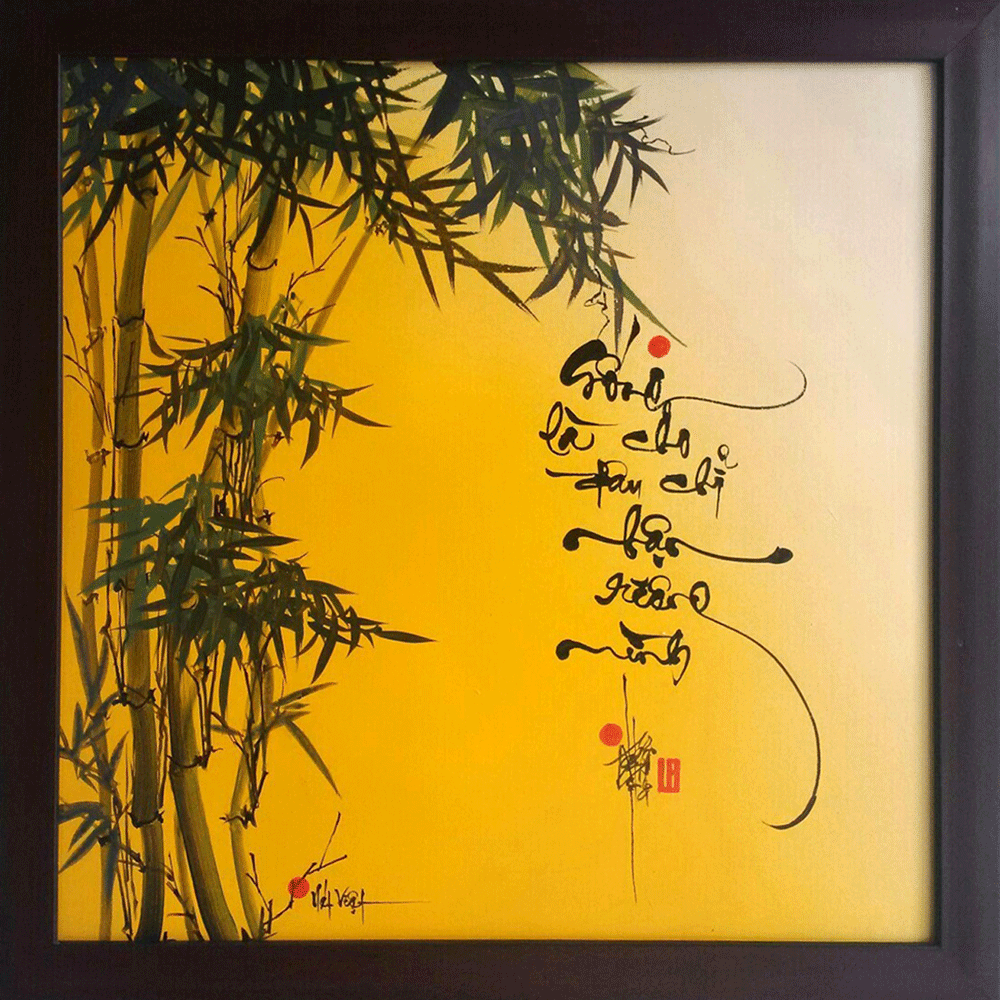 Sống
là cho
đâu chỉ
nhận
riêng
mình
Nét Việt